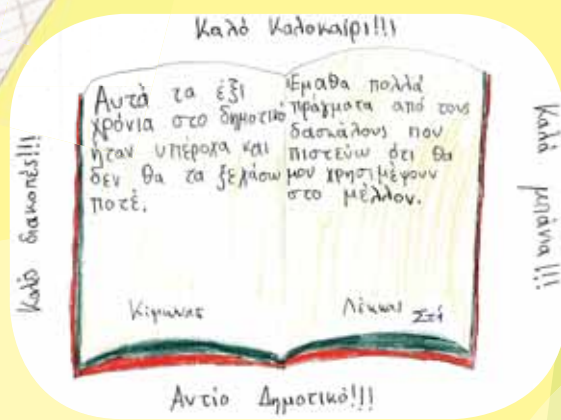 Καλό Καλοκαίρι!!!
Καλές διακοπές!!!
Αυτά τα έξι
χρόνια στο δημοτικό
ήταν υπέροχα και
δεν θα τα ξεχάσω
ποτέ.
Έμαθα πολλά
πράγματα από τους
δασκάλους που
πιστεύω ότι θα
μου χρησιμέψουν
στο μέλλον.
Λέκκας Στ1
Καλά μπάνια!!!
Αντίο Δημοτικό!!!